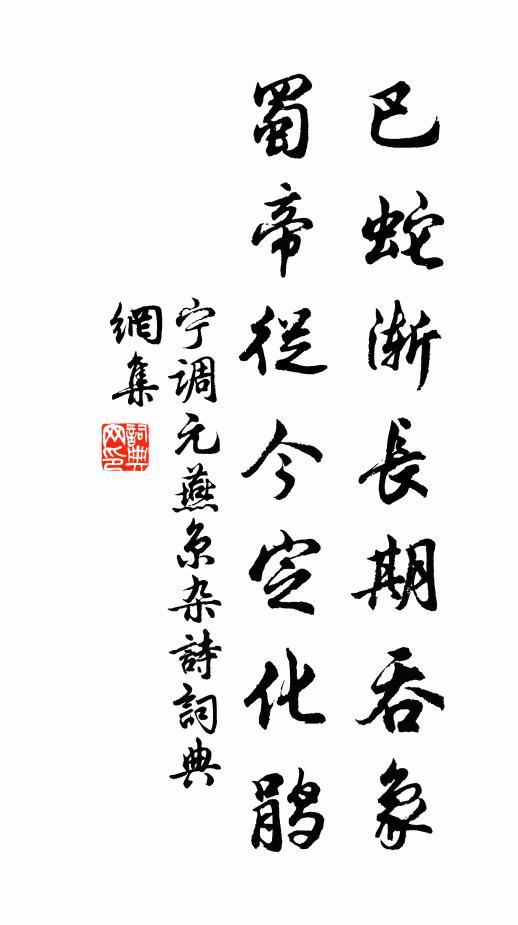 巴蛇渐長期吞象
蜀帝從今定化鹃
宁調元燕京杂詩詞典
網集
詞典
网印